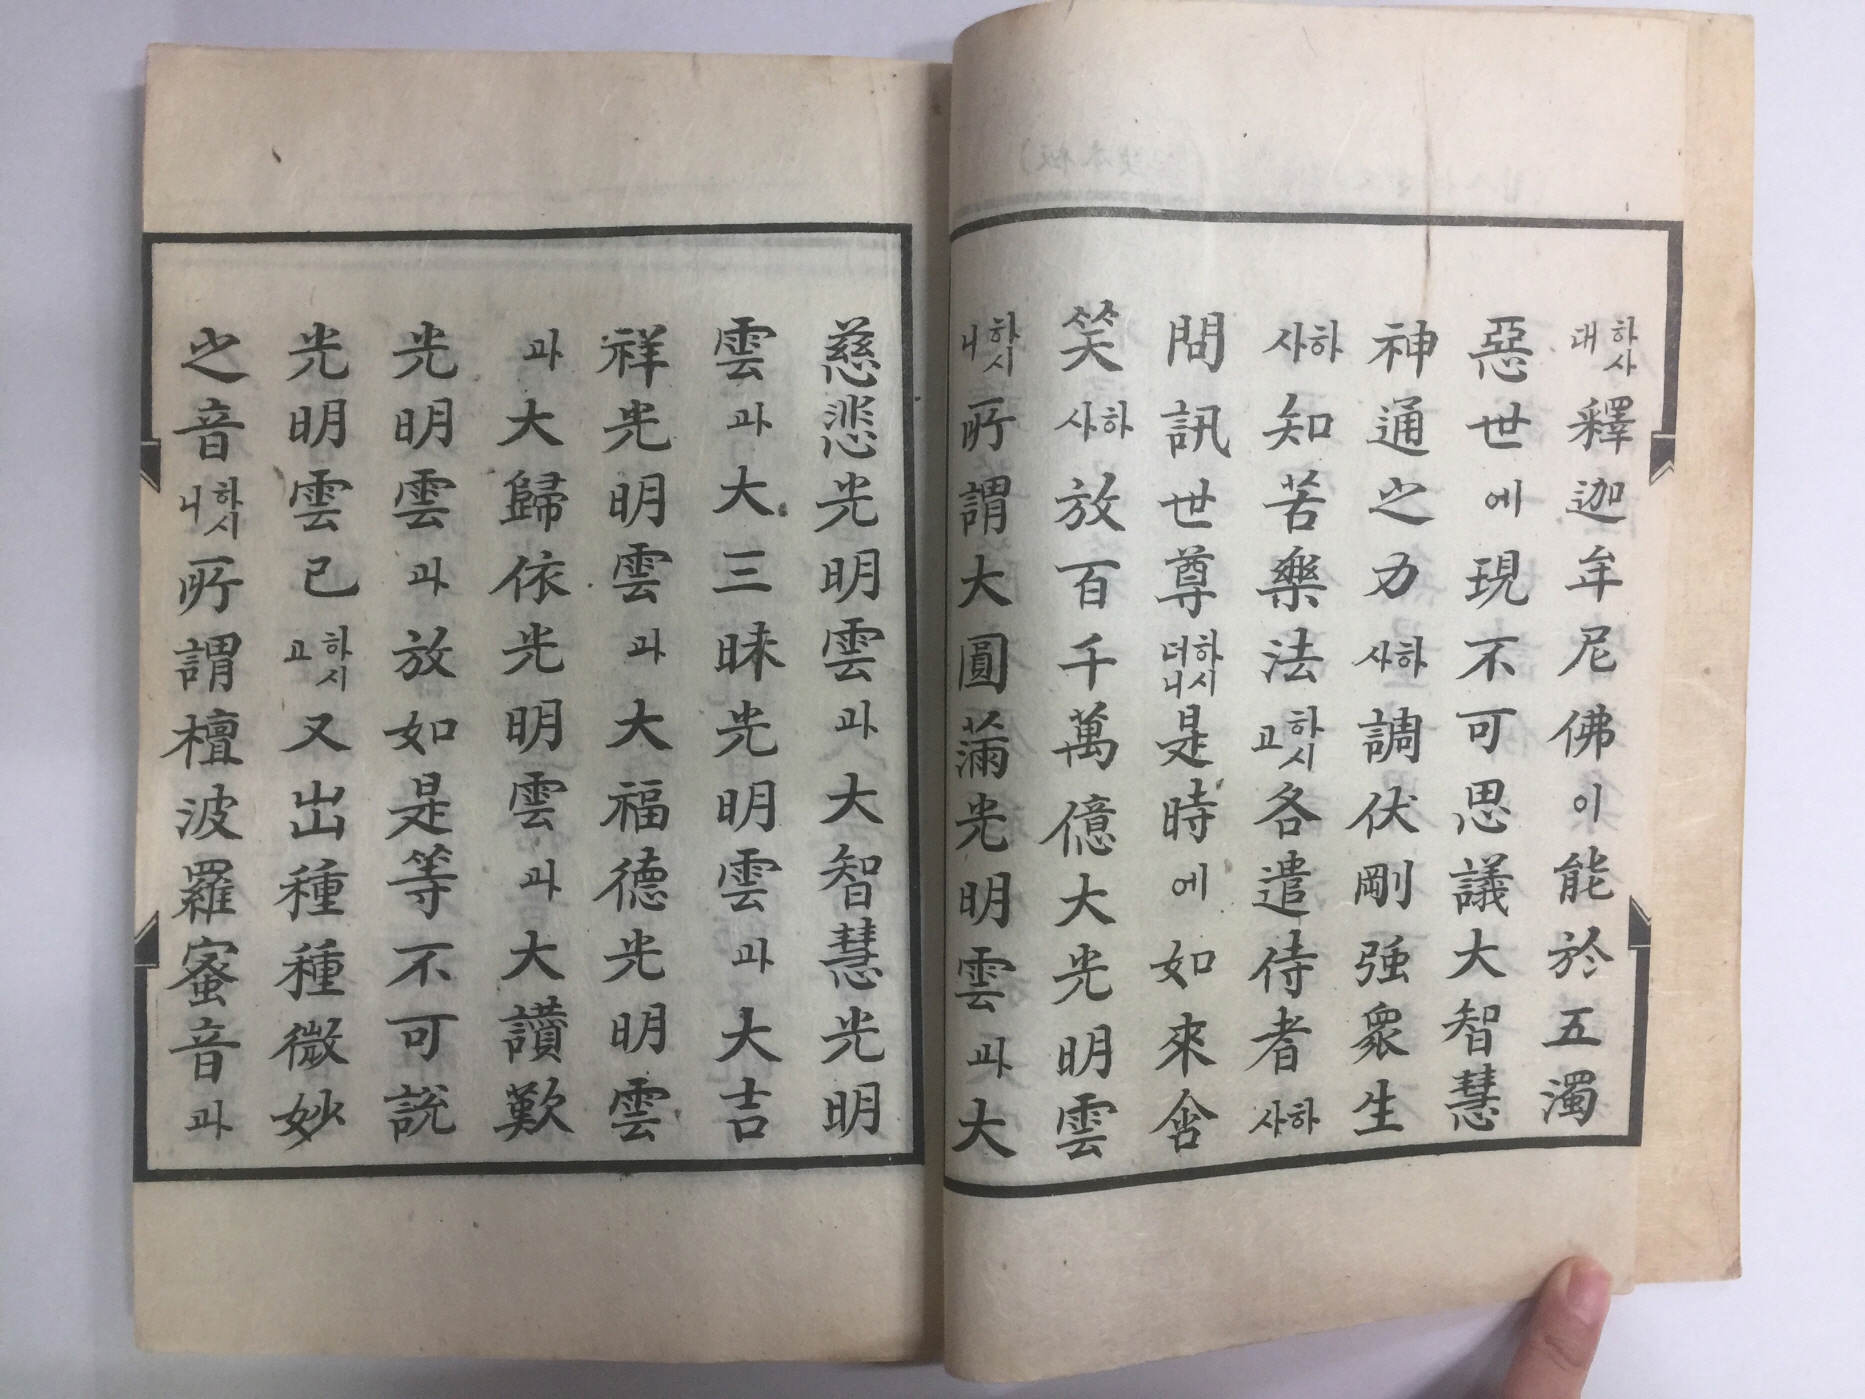 하사대釋迦牟尼佛이能於五濁
惡世에現不可思議大智慧
神通之力하사調伏剛強衆生
하사知苦樂法하시고各遣侍者하사
問訊世尊하시더니是時에如來含
笑하사放百千萬億大光明雲
하시니所謂大圓滿光明雲과大
慈悲光明雲과大智慧光明
雲과大三昧光明雲과大吉
祥光明雲과大福德光明雲
과大歸依光明雲과大讚歎
光明雲과放如是等不可說
光明雲已하시고又出種種微妙
之音하시니所謂檀波羅蜜音과